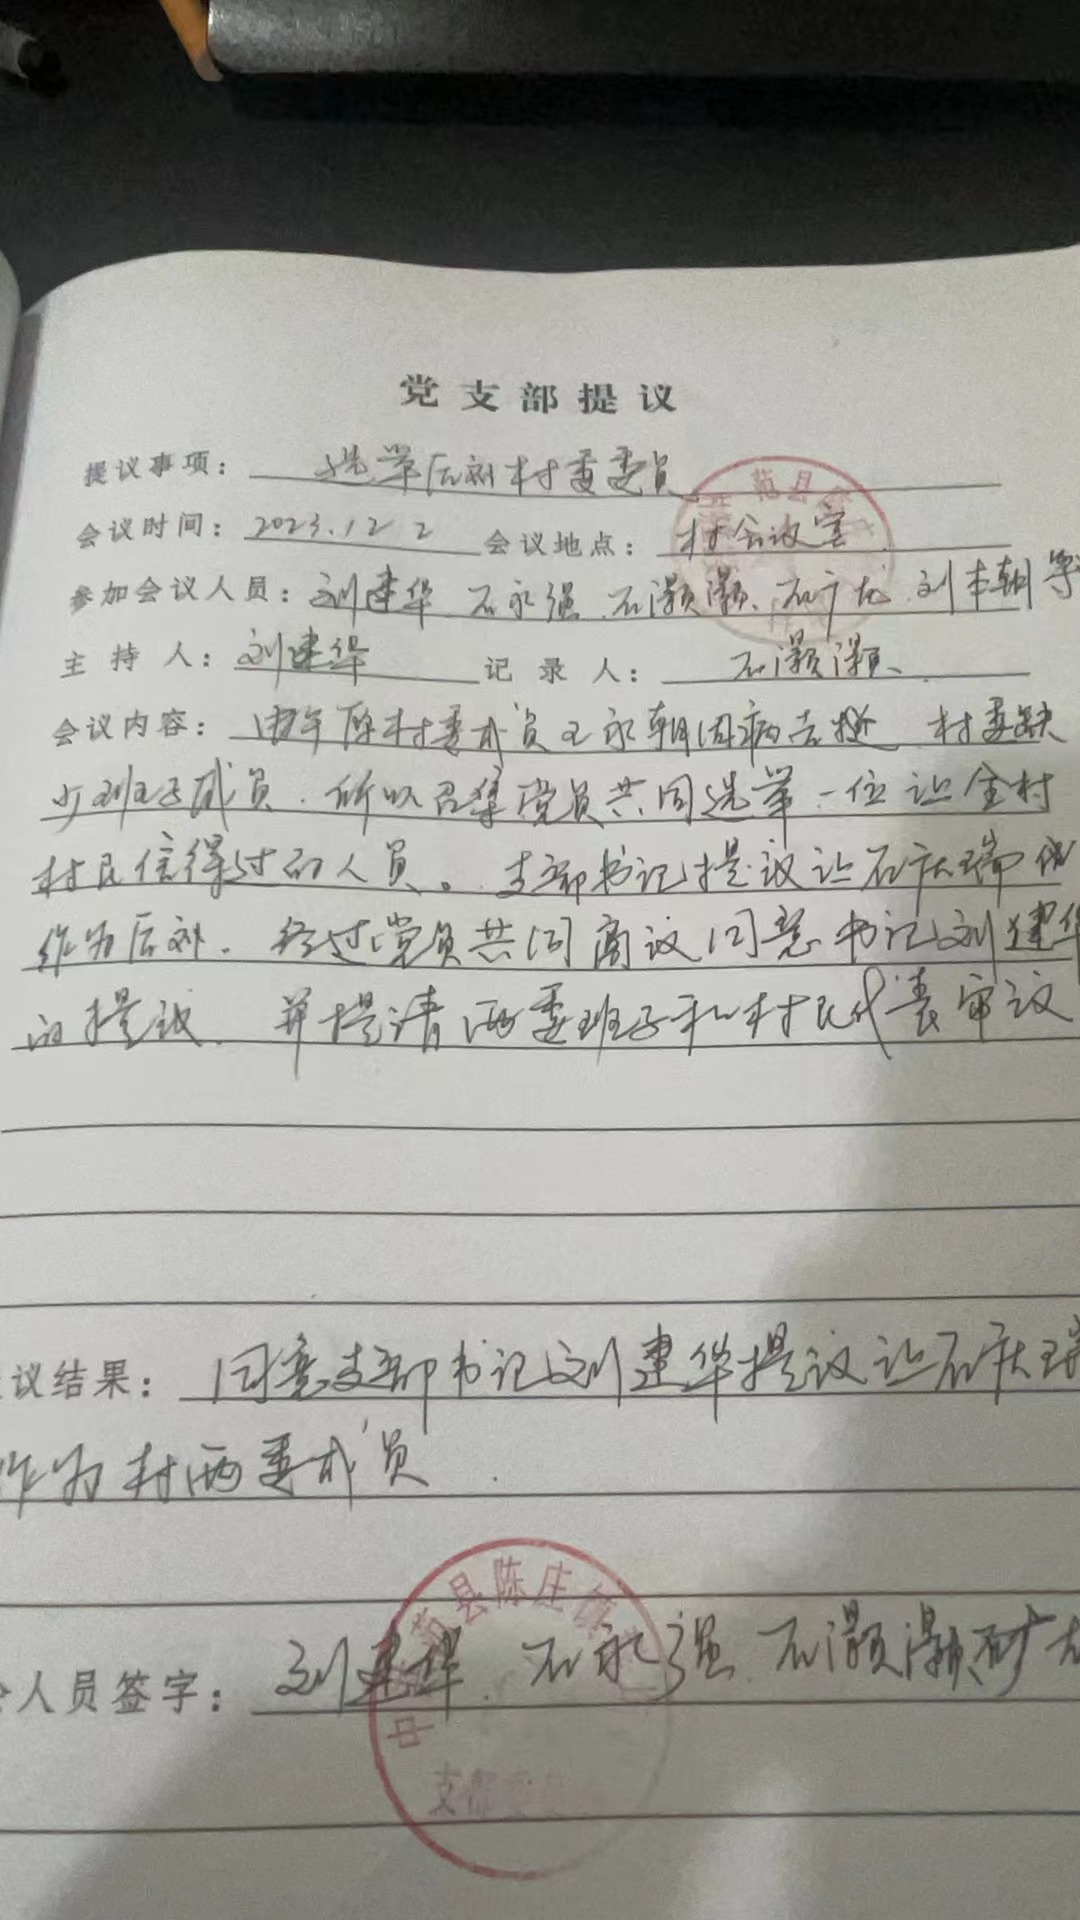 党支部提议
提议事项： 选举后刘村委委员
会议时间： 2023.12 2 会议地点： 村会议室
参加会议人员： 刘建华 石永强 石灏灏、石广龙 刘本朝等
主持人： 刘建华 记录人： 石灏灏
会议内容： 由于原村委成员王永朝因病去逝 村委缺
少班子成员. 所以召集党员共同选举一位让全村
村民信得过的人员。支部书记提议让石庆瑞
作为后刘. 经过党员共同商议同意书记刘建华
的提议. 并提请两委班子和村民代表审议
议结果： 同意支部书记刘建华提议让石庆瑞
作为村两委成员.
人员签字： 刘建华. 石永强 石灏灏 石广龙
范县
范县陈庄镇
中
支部委员